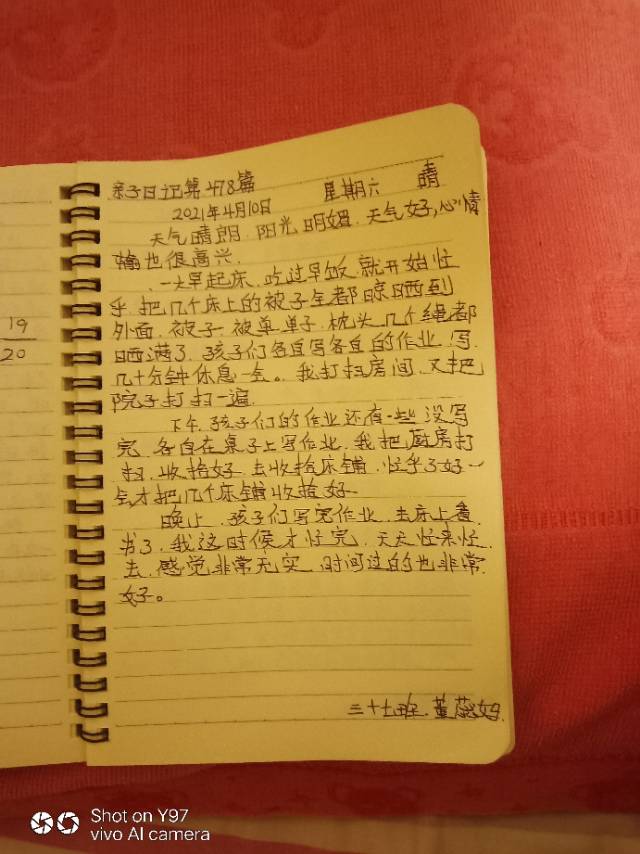 19
20
亲子日记第478篇 星期六 晴
2021年4月10日
天气晴朗.阳光明媚.天气好,心情
也很高兴.
一大早起床.吃过早饭.就开始忙
乎.把几个床上的被子全都晾晒到
外面.被子.被单.单子.枕头.几个绳都
晒满了.孩子们各自写各自的作业.写
几十分钟休息一会。我打扫房间.又把
院子打扫一遍.
下午.孩子们的作业还有一些没写
完.各自在桌子上写作业.我把厨房打
扫.收拾好.去收拾床铺.忙乎了好一
会才把几个床铺收拾好.
晚上.孩子们写完作业.去床上看
书了.我这时候才忙完.天天忙来忙
去.感觉非常充实.时间过的也非常
好。
三十七班.董
Shot on Y97
vivo AI camera